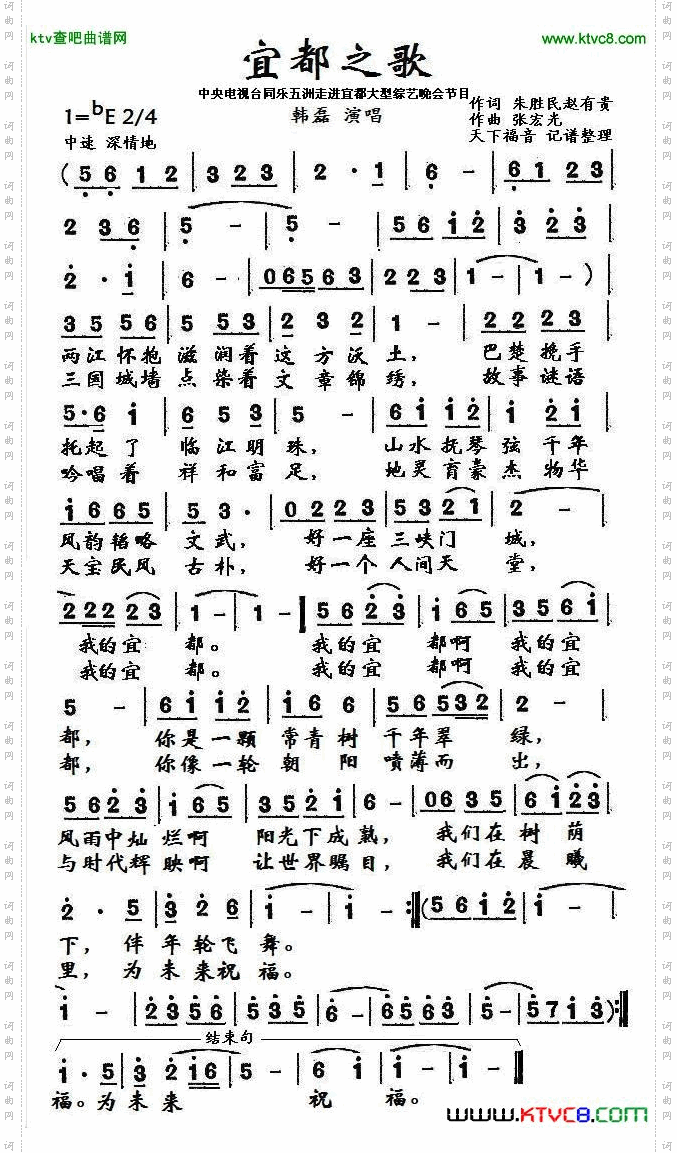 ktv查吧曲谱网
www.ktvc8.com
宜都之歌
中央电视台同乐五洲走进宜都大型综艺晚会节目
1=bE 2/4
韩磊 演唱
作词 朱胜民赵有贵
作曲 张宏光
中速 深情地
天下福音 记谱整理
(5 6 1 2 | 3 2 3 | 2 · 1 | 6 - | 6 1 2 3
2 3 6 | 5 - | 5 - | 5 6 1 2 | 3 2 3
2 · 1 | 6 - | 0 6 5 6 3 | 2 2 3 | 1 - | 1 - )
3 5 5 6 | 5 5 3 | 2 3 2 | 1 - | 2 2 2 3
两江怀抱滋润着这方沃土, 巴楚挽手
三国城墙点染着文章锦绣, 故事谜语
5 · 6 1 | 6 5 3 | 5 - | 6 1 1 | 1 2 1
托起了 临江明珠, 山水抚琴弦千年
吟唱着 祥和富足, 地灵育豪杰物华
1 6 6 5 | 5 3 · | 0 2 2 3 | 5 3 2 1 | 2 -
风韵韬略 文武, 好一座三峡门 城,
天宝民风 古朴, 好一个人间天 堂,
2 2 2 2 3 | 1 - | 1 - ] 5 6 2 3 | 1 6 5 | 3 5 6 1
我的宜 都。 我的宜 都啊 我的宜
我的宜 都。 我的宜 都啊 我的宜
5 - | 6 1 1 2 | 6 1 6 | 5 6 5 3 2 | 2 -
都, 你是一颗 常青树 千年翠 绿,
都, 你像一轮 朝 阳 喷薄而 出,
5 6 2 3 | 1 6 5 | 3 5 2 1 | 6 - | 0 6 3 5 | 6 1 2 3
风雨中灿 烂啊 阳光下成熟, 我们在树 荫
与时代辉 映啊 让世界瞩目, 我们在晨 曦
2 · 5 | 3 2 6 | 1 - | 1 - :‖ (5 6 1 2 | 1 -
下, 伴年轮飞 舞。
里, 为未来祝 福。
1 - | 2 3 5 6 | 5 3 5 | 6 - | 6 6 3 | 5 - | 5 7 1 3) :‖
结束句
1 · 5 | 3 2 1 6 | 6 1 | 1 - | 1 - ‖
福。为未来 祝 福。
www.KTVC8.com
词曲网